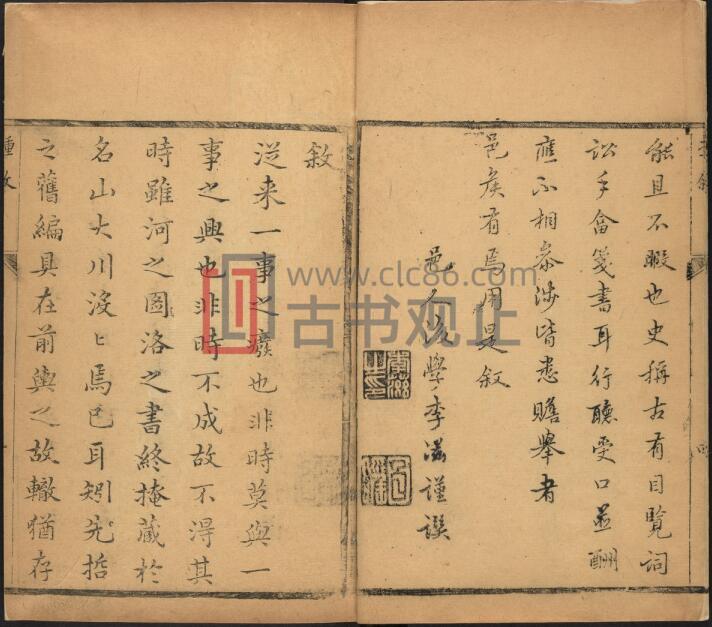 能且不暇也史稱古有目覽詞
訟手畣箋書耳行聽受口並酬
應不相叅涉皆悉贍舉者
邑侯有焉用是叙
邑人 學李 謹譔
敘
從来一事之癈也非時莫與一
事之興也非時不成故不得其
時雖河之圖洛之書終掩蔵於
名山大川沒〻焉已耳矧先哲
之舊編具在前輿之故轍猶存
www.clc86.com
古书观止